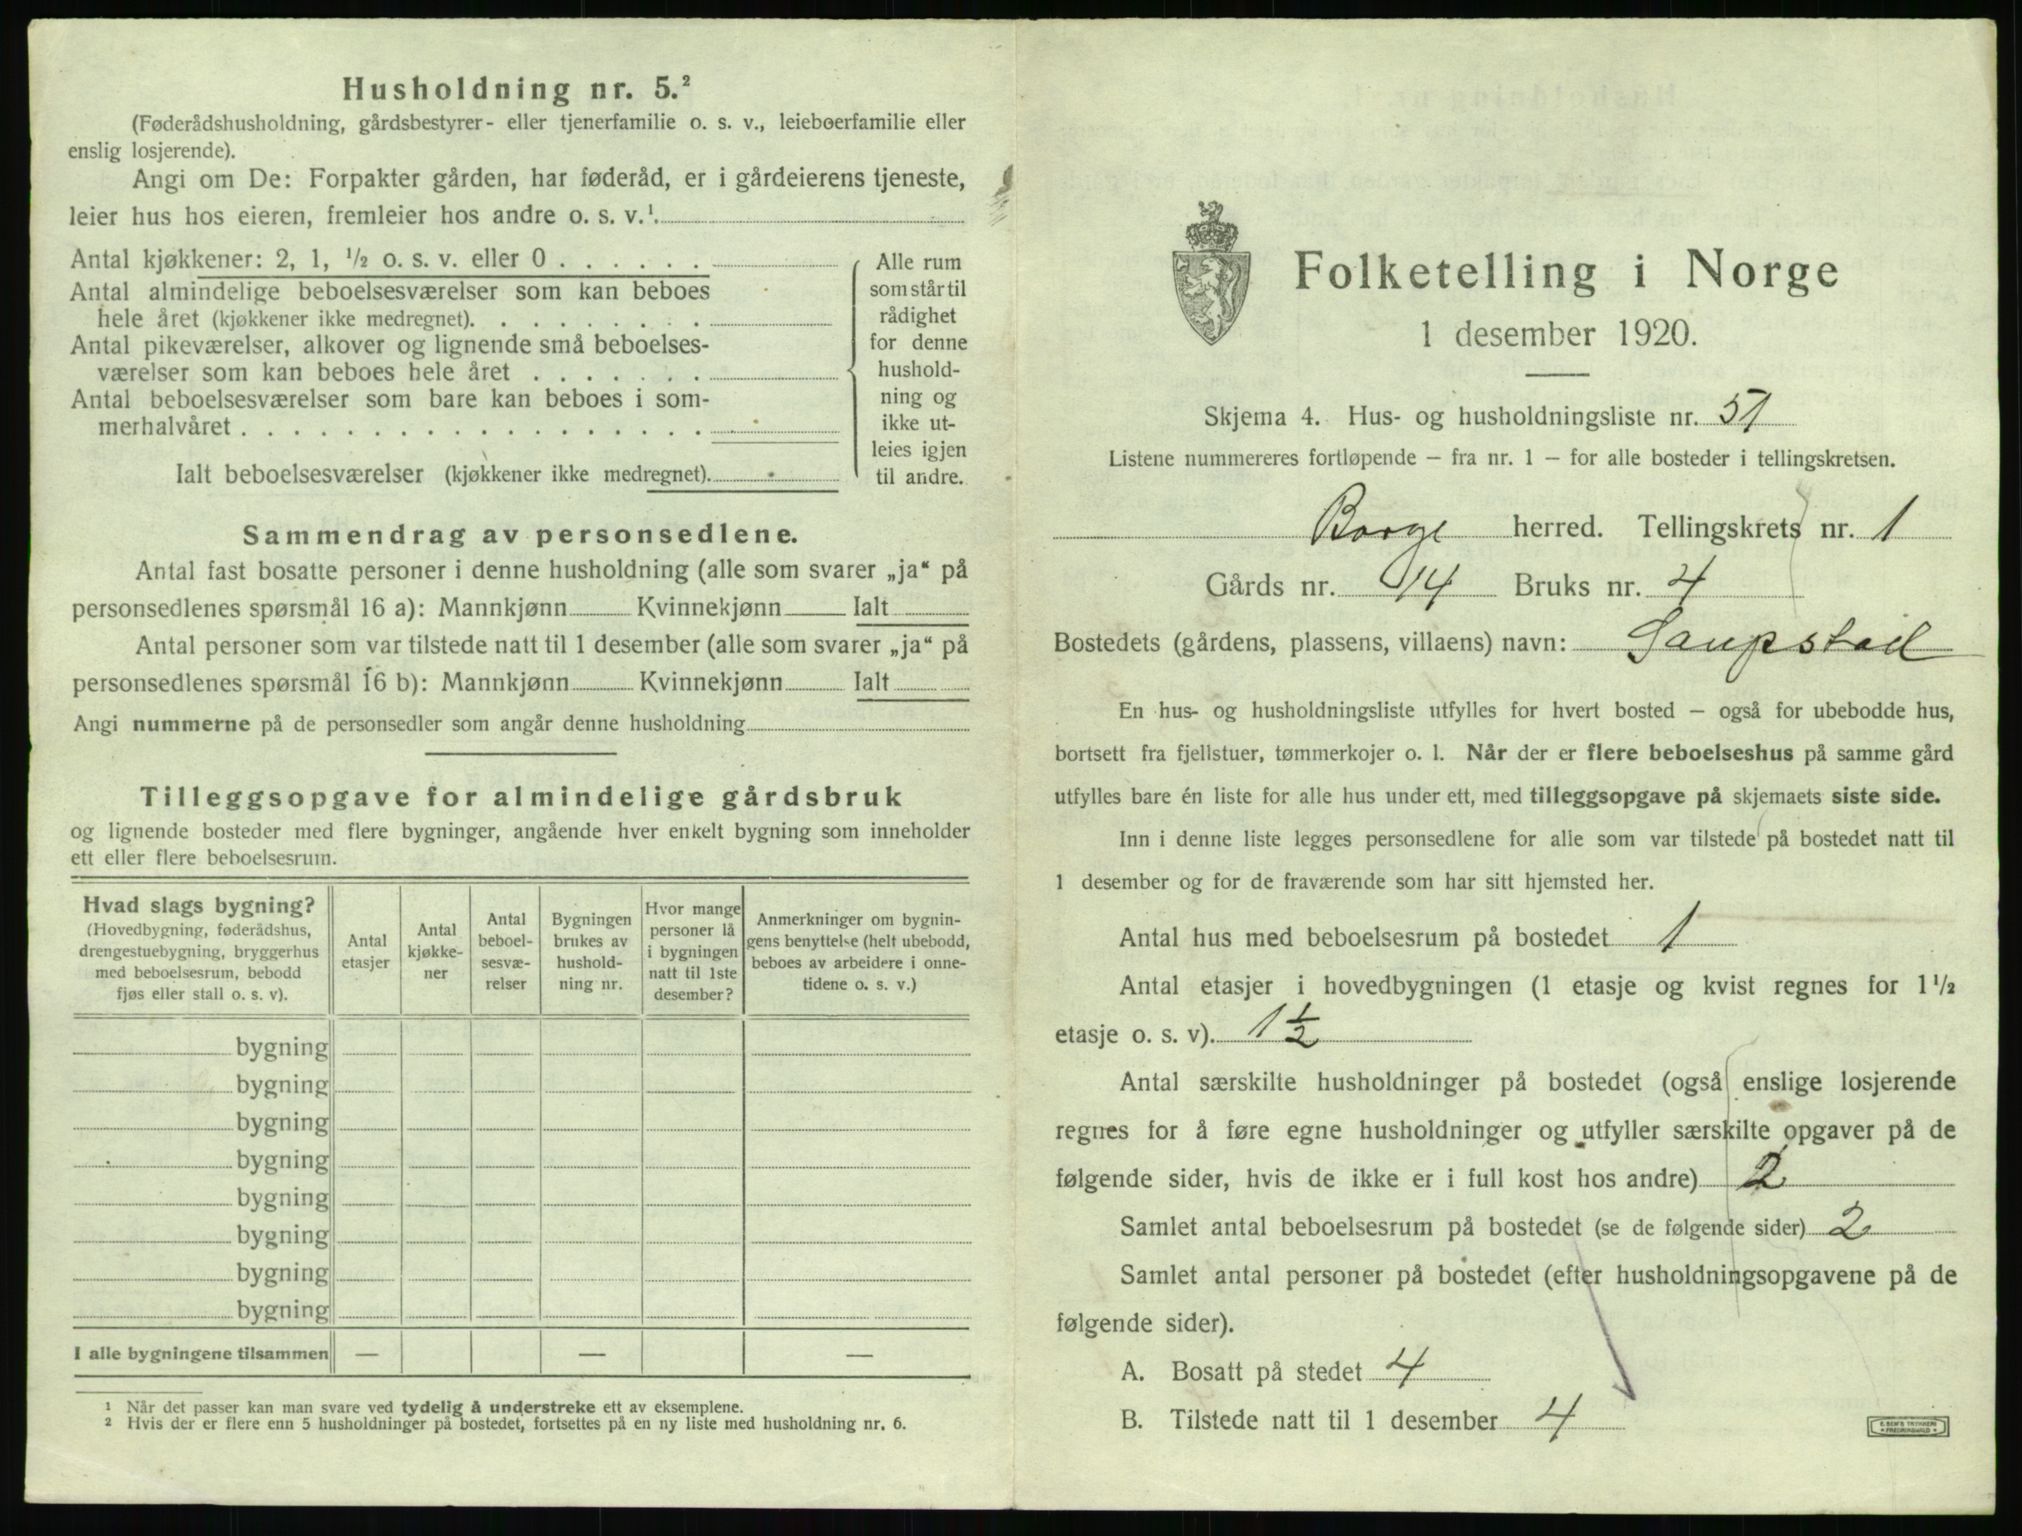 Husholdning nr. 5.²
(Føderådshusholdning, gårdsbestyrer- eller tjenerfamilie o. s. v., leieboerfamilie eller
enslig losjerende).
Angi om De: Forpakter gården, har føderåd, er i gårdeierens tjeneste,
leier hus hos eieren, fremleier hos andre o. s. v.¹
Antal kjøkkener: 2, 1, ½ o. s. v. eller 0
Antal almindelige beboelsesværelser som kan beboes
hele året (kjøkkener ikke medregnet).
Antal pikeværelser, alkover og lignende små beboelses-
værelser som kan beboes hele året
Antal beboelsesværelser som bare kan beboes i som-
merhalvåret
Ialt beboelsesværelser (kjøkkener ikke medregnet).
Alle rum
som står til
rådighet
for denne
hushold-
ning og
ikke ut-
leies igjen
til andre.
Sammendrag av personsedlene.
Antal fast bosatte personer i denne husholdning (alle som svarer „ja“ på
personsedlenes spørsmål 16 a): Mannkjønn Kvinnekjønn Ialt
Antal personer som var tilstede natt til 1 desember (alle som svarer „ja“ på
personsedlenes spørsmål 16 b): Mannkjønn Kvinnekjønn Ialt
Angi nummerne på de personsedler som angår denne husholdning
Tilleggsopgave for almindelige gårdsbruk
og lignende bosteder med flere bygninger, angående hver enkelt bygning som inneholder
ett eller flere beboelsesrum.
Hvad slags bygning?
(Hovedbygning, føderådshus,
drengestuebygning, bryggerhus
med beboelsesrum, bebodd
fjøs eller stall o. s. v).
Antal
etasjer
Antal
kjøkke-
ner
Antal
beboel-
sesvæ-
relser
Bygningen
brukes av
hushold-
ning nr.
Hvor mange
personer lå
i bygningen
natt til 1ste
desember?
Anmerkninger om bygnin-
gens benyttelse (helt ubebodd,
beboes av arbeidere i onne-
tidene o. s. v.)
bygning
bygning
bygning
bygning
bygning
bygning
bygning
bygning
I alle bygningene tilsammen — — —
¹ Når det passer kan man svare ved tydelig å understreke ett av eksemplene.
² Hvis der er flere enn 5 husholdninger på bostedet, fortsettes på en ny liste med husholdning nr. 6.
Folketelling i Norge
1 desember 1920.
Skjema 4. Hus- og husholdningsliste nr. 51
Listene nummereres fortløpende – fra nr. 1 – for alle bosteder i tellingskretsen.
Borge herred. Tellingskrets nr. 1
Gårds nr. 14 Bruks nr. 4
Bostedets (gårdens, plassens, villaens) navn: Saupstad
En hus- og husholdningsliste utfylles for hvert bosted – også for ubebodde hus,
bortsett fra fjellstuer, tømmerkojer o. l. Når der er flere beboelseshus på samme gård
utfylles bare én liste for alle hus under ett, med tilleggsopgave på skjemaets siste side.
Inn i denne liste legges personsedlene for alle som var tilstede på bostedet natt til
1 desember og for de fraværende som har sitt hjemsted her.
Antal hus med beboelsesrum på bostedet 1
Antal etasjer i hovedbygningen (1 etasje og kvist regnes for 1½
etasje o. s. v). 1½
Antal særskilte husholdninger på bostedet (også enslige losjerende
regnes for å føre egne husholdninger og utfyller særskilte opgaver på de
følgende sider, hvis de ikke er i full kost hos andre) 2
Samlet antal beboelsesrum på bostedet (se de følgende sider) 2
Samlet antal personer på bostedet (efter husholdningsopgavene på de
følgende sider).
A. Bosatt på stedet 4
B. Tilstede natt til 1 desember 4